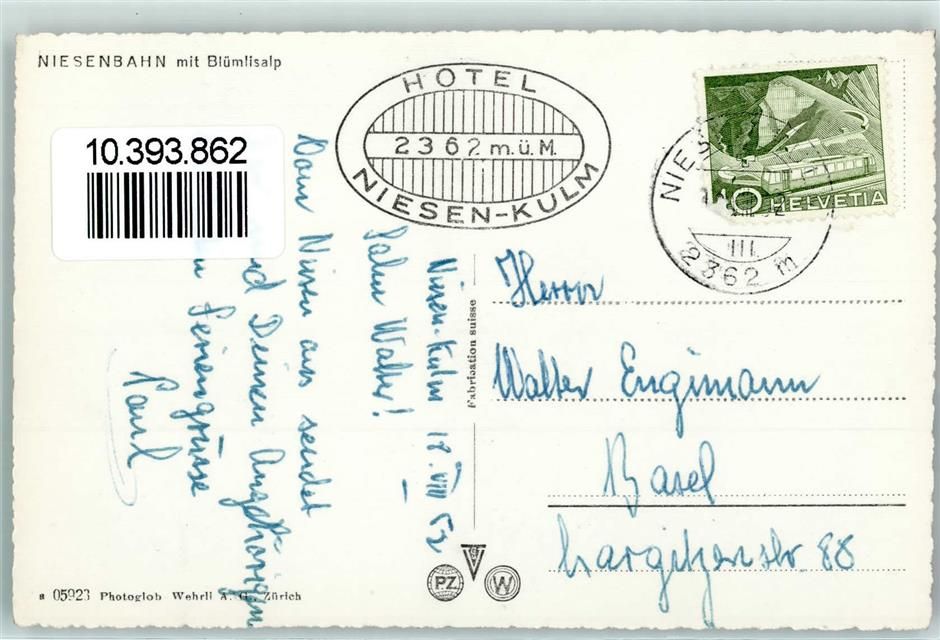 NIESENBAHN mit Blümlisalp
10.393.862
HOTEL
2362 m.ü.M.
NIESEN-KULM
NIES
10 HELVETIA
III
2362 m
Niesen-Kulm 18.VIII 52
Walter!
Vom Niesen aus sendet
Deinen Angehörigen
Feriengrüsse
Paul
Fabrication suisse
Herrn
Walter Engimann
Basel
88
PZ
W
05923 Photoglob Wehrli A. G., Zürich